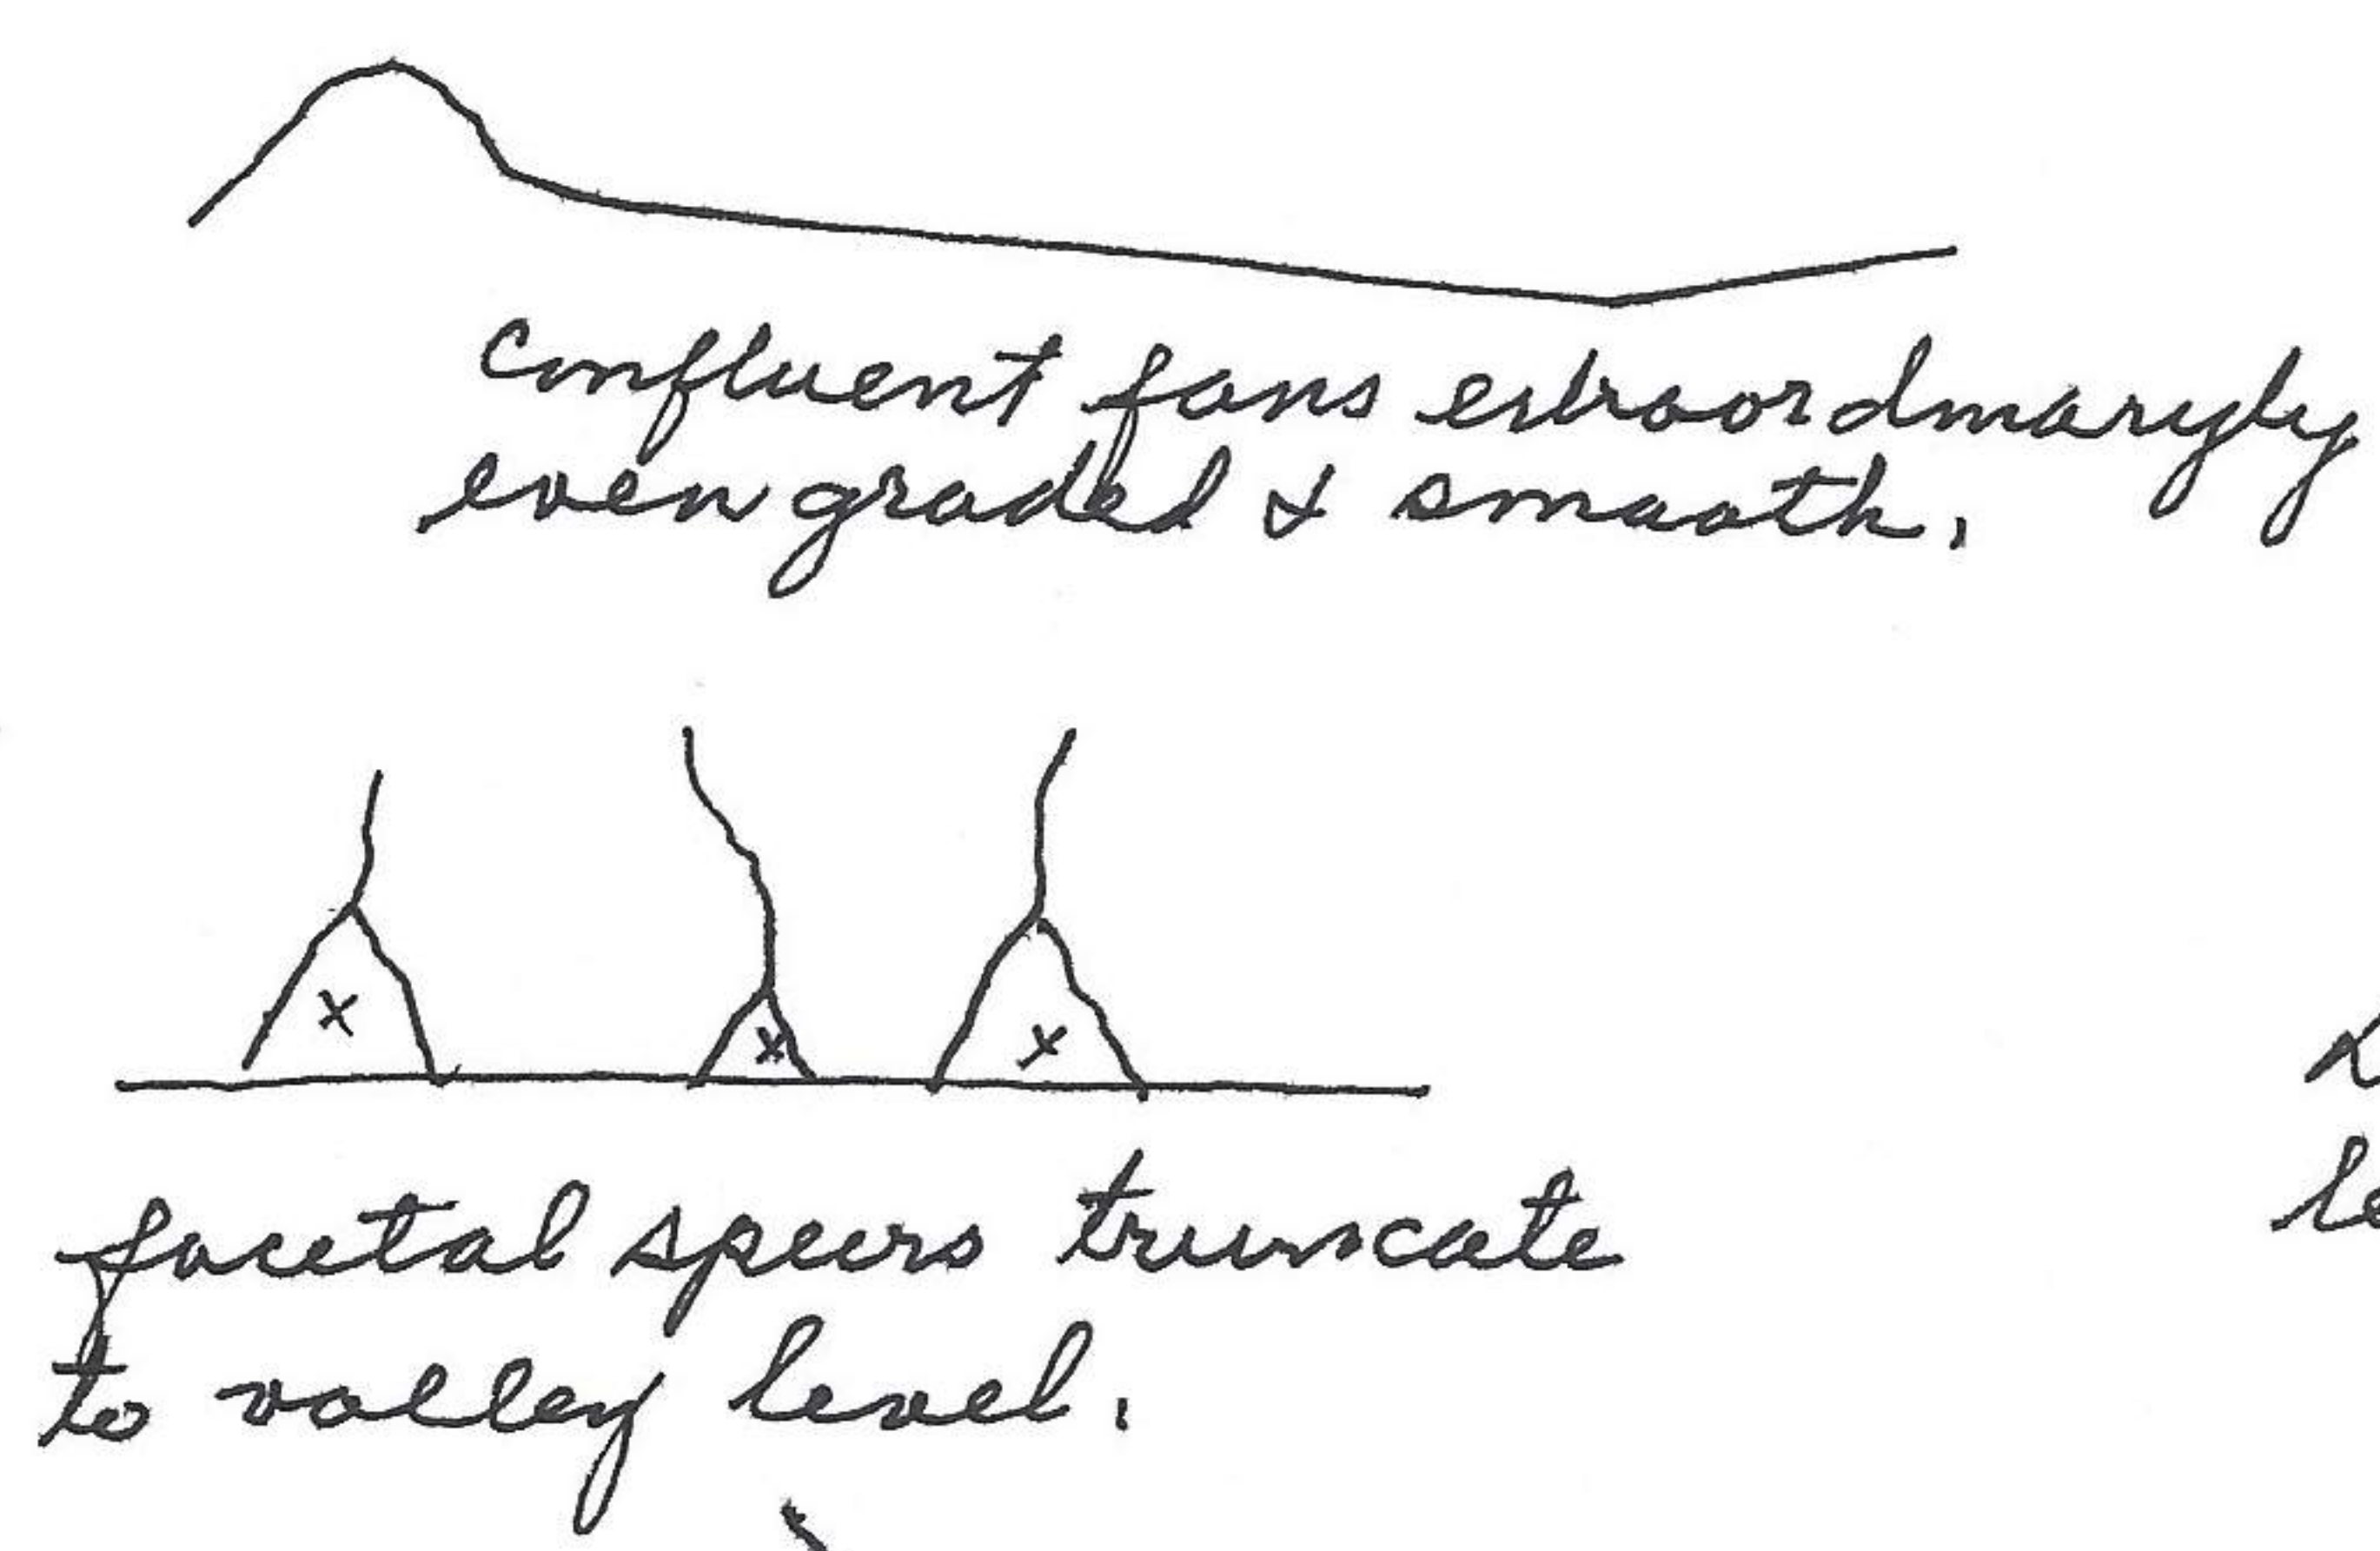 confluent fans extraordinaryly
even graded & smooth.
x
x
x
facetal spurs truncate
to valley level.
le